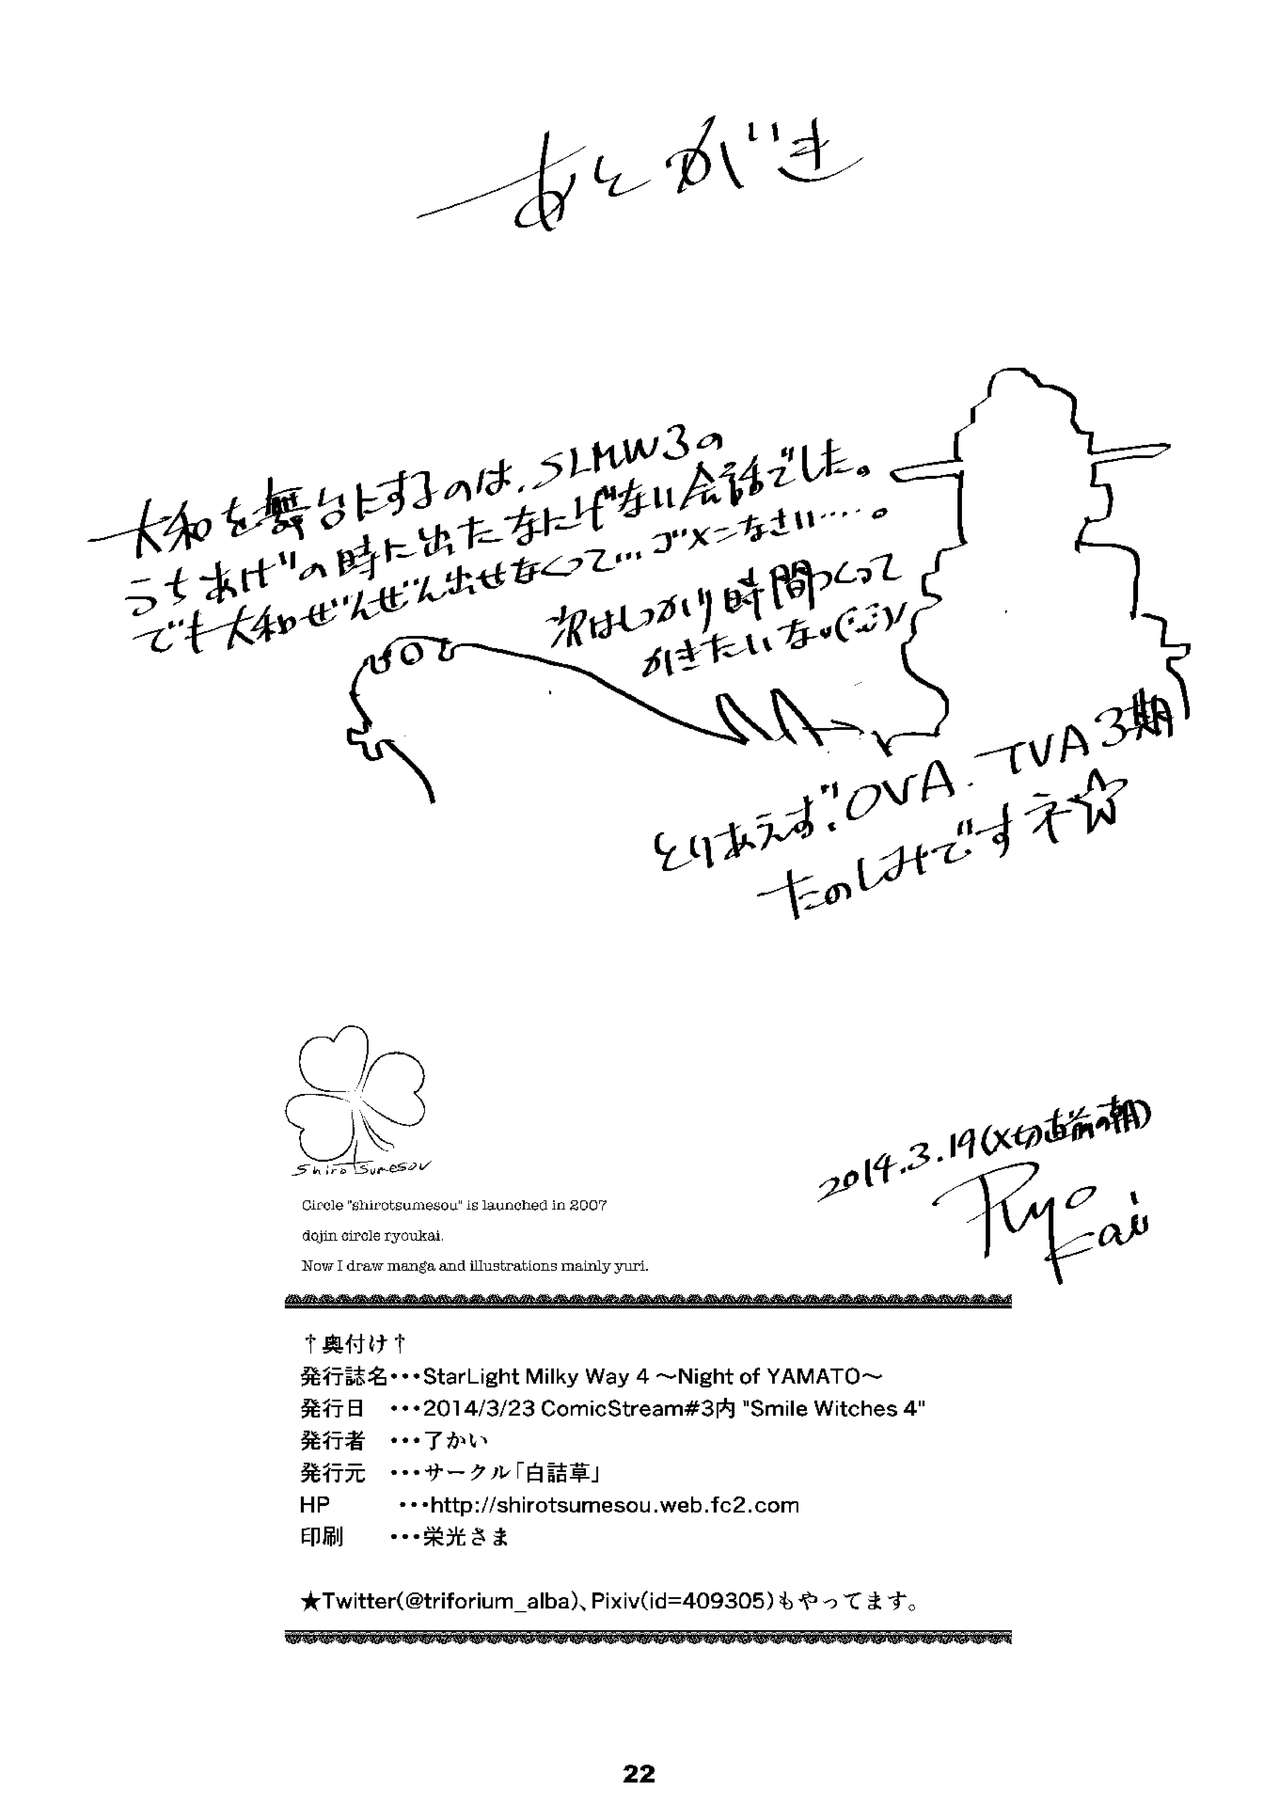 あとがき
大和を舞台にするのは、SLMW3の
うちあげの時に出たなにげない会話でした。
でも大和ぜんぜん出せなくって…ゴメンなさい……。
次はしっかり時間つくって
かきたいな。
とりあえず、OVA、TVA3期
たのしみですネ☆
Shirotsumesou
2014.3.19(〆切直前の朝)
Ryo
Kai
Circle "shirotsumesou" is launched in 2007
dojin circle ryoukai.
Now I draw manga and illustrations mainly yuri.
†奥付け†
発行誌名・・・StarLight Milky Way 4 ～Night of YAMATO～
発行日 ・・・2014/3/23 ComicStream#3内 "Smile Witches 4"
発行者 ・・・了かい
発行元 ・・・サークル「白詰草」
HP ・・・http://shirotsumesou.web.fc2.com
印刷 ・・・栄光さま
★Twitter(@triforium_alba)、Pixiv(id=409305)もやってます。
22